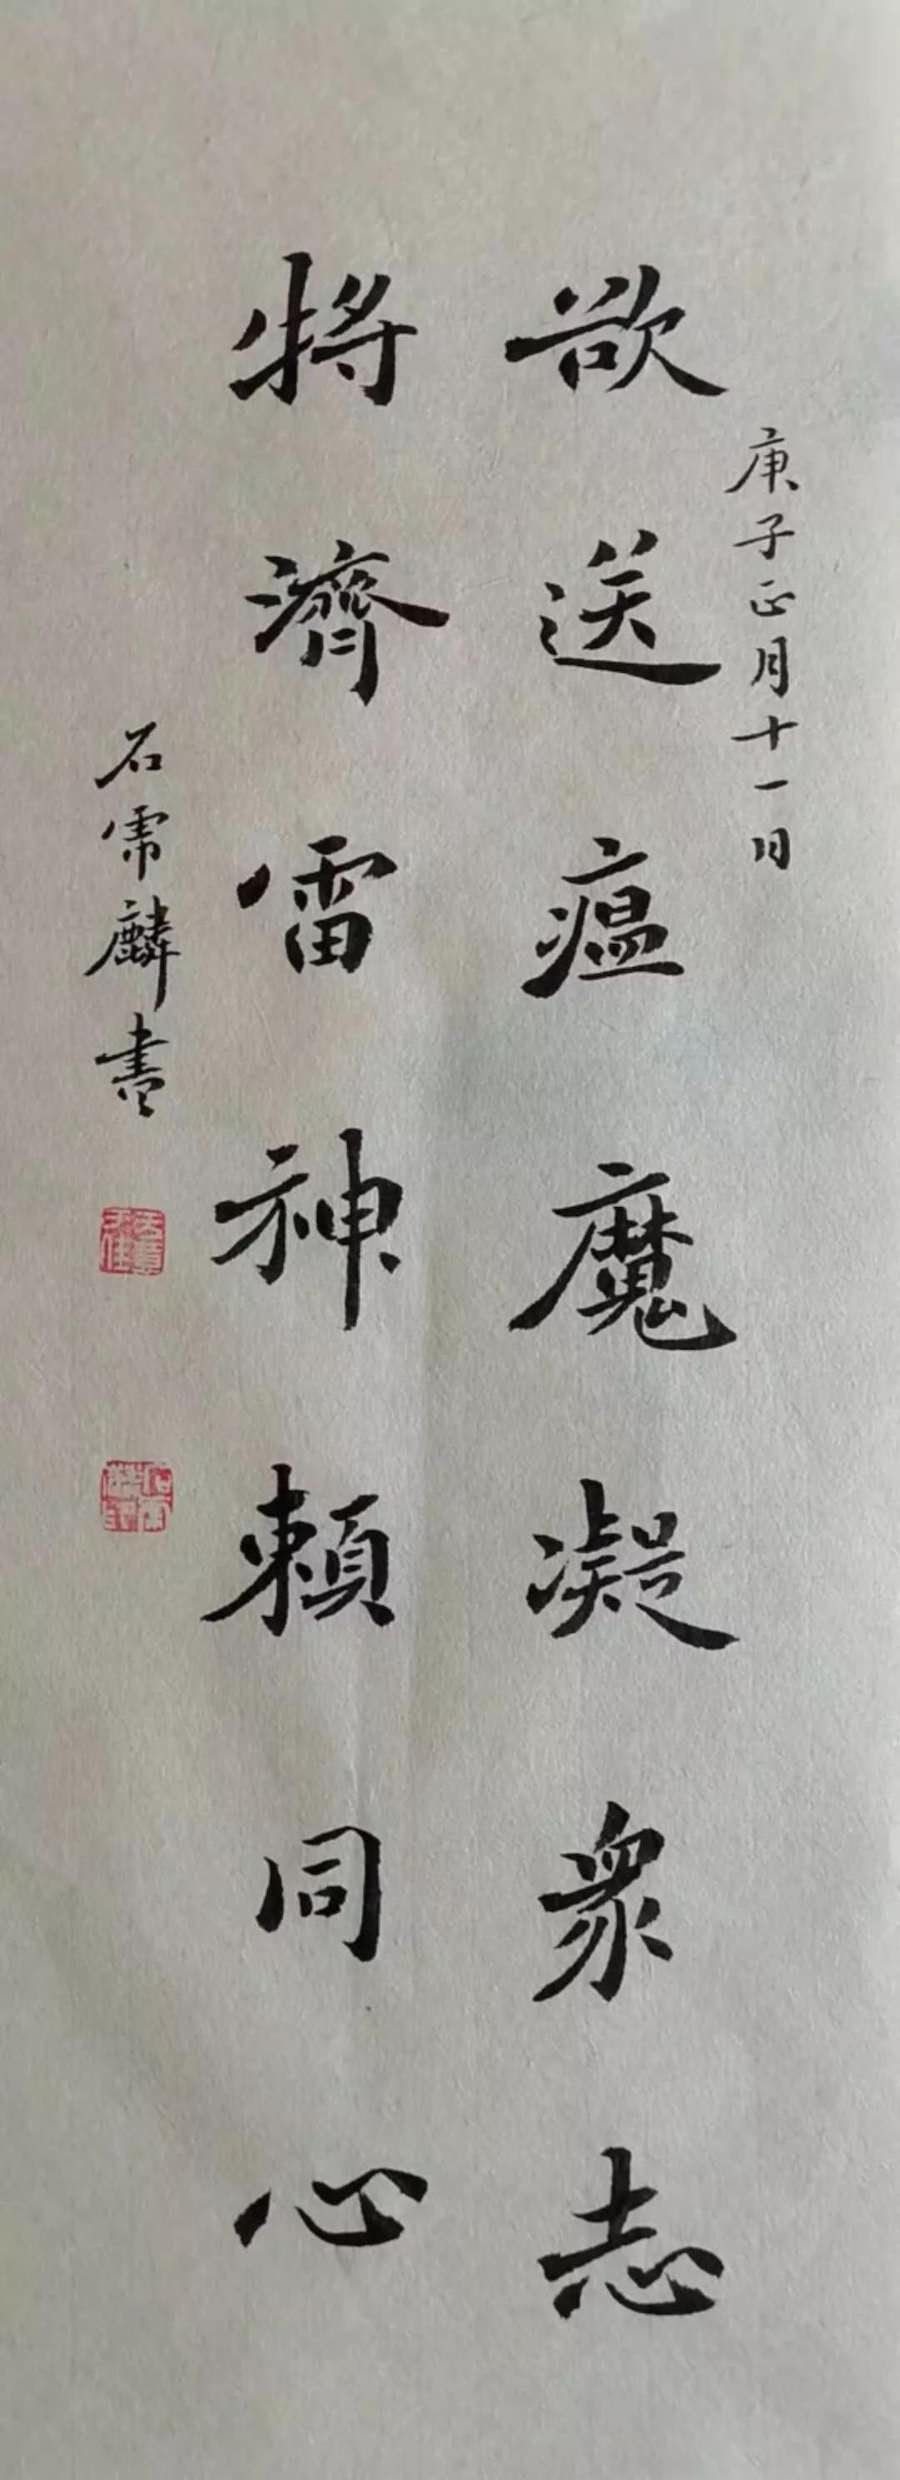 庚子正月十一日
欲送瘟魔凝眾志
將濟雷神賴同心
石霈麟書